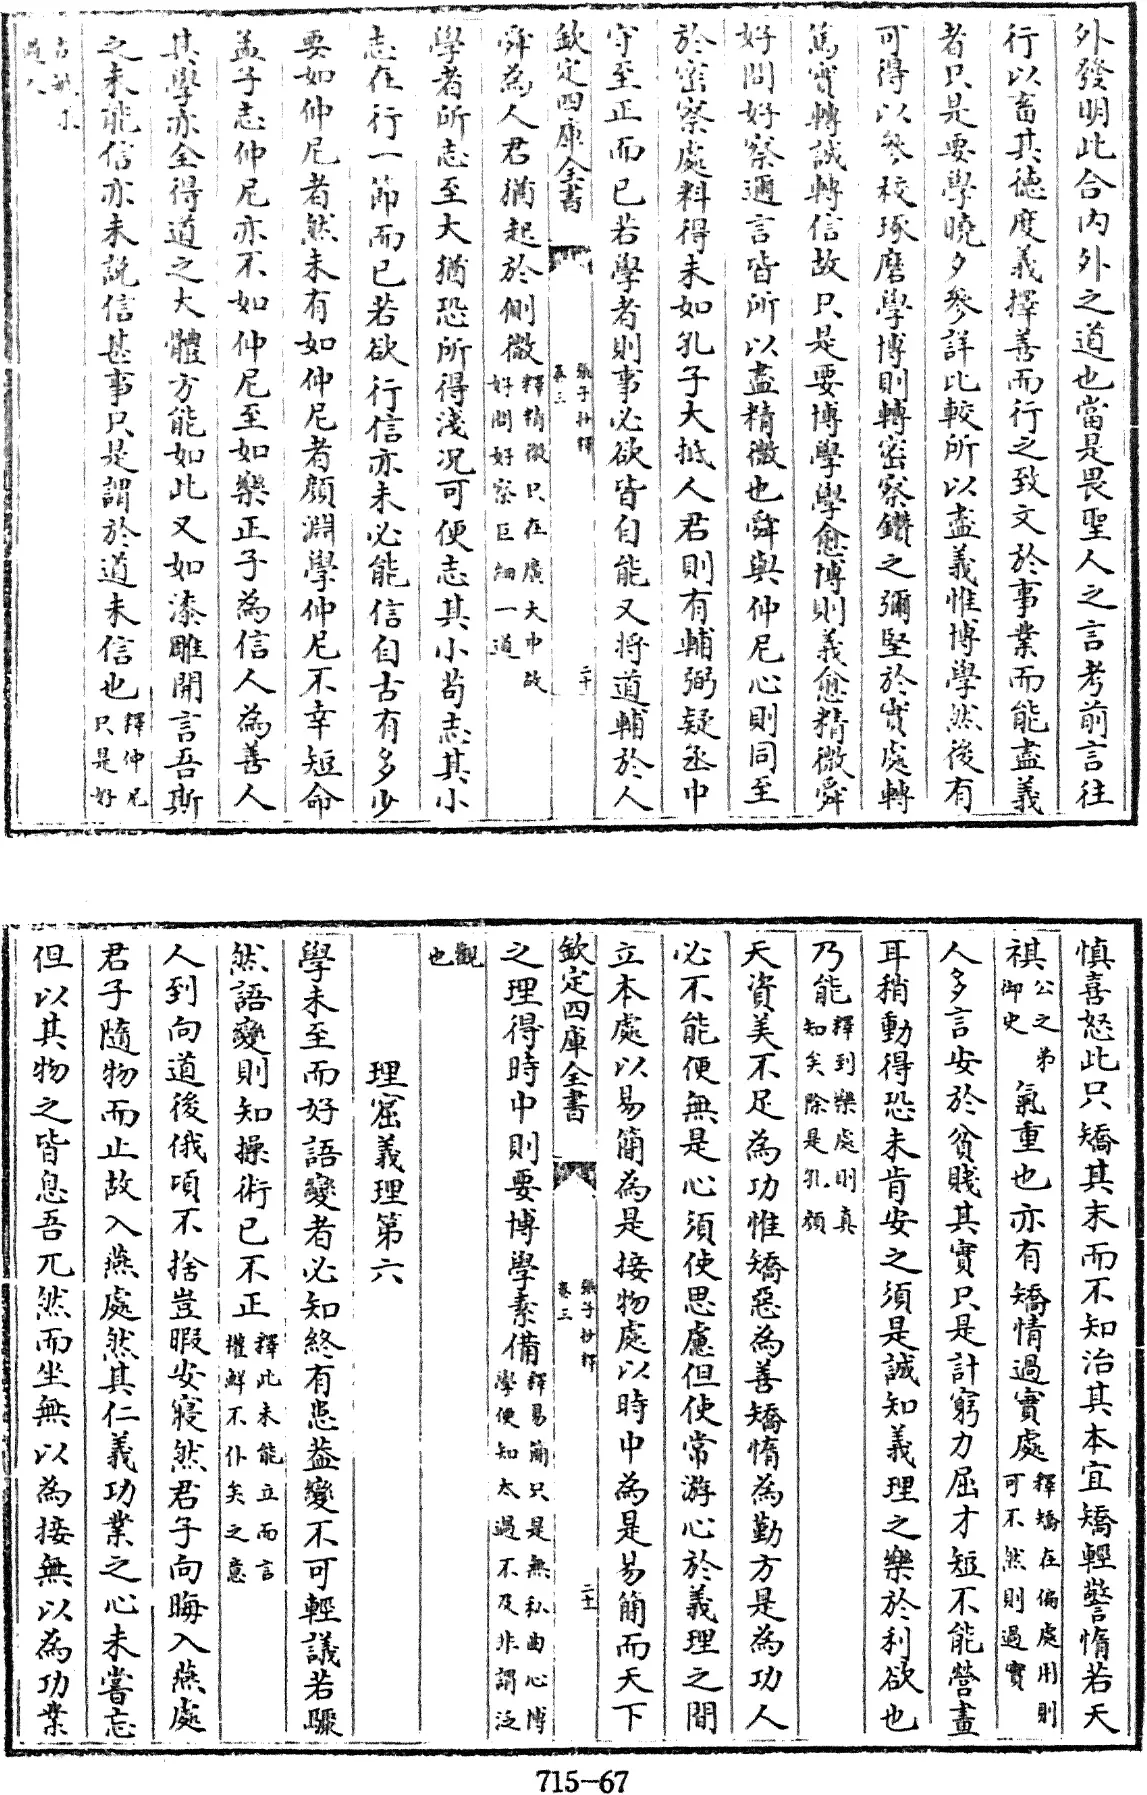 外發明此合内外之道也當是畏聖人之言考前言往
行以畜其徳度義擇善而行之致文於事業而能盡義
者只是要學曉夕參詳比較所以盡義惟博學然後有
可得以參校琢磨學博則轉密察鑽之彌堅於實處轉
篤實轉誠轉信故只是要博學學愈博則義愈精微舜
好問好察邇言皆所以盡精微也舜與仲尼心則同至
於密察處料得未如孔子大抵人君則有輔弼疑丞中
守至正而已若學者則事必欲皆自能又将道輔於人
欽定四庫全書
張子抄釋
卷三
二十
舜為人君猶起於側微釋精微只在廣大中故
好問好察巨細一道
學者所志至大猶恐所得淺况可便志其小苟志其小
志在行一節而已若欲行信亦未必能信自古有多少
要如仲尼者然未有如仲尼者顔淵學仲尼不幸短命
孟子志仲尼亦不如仲尼至如樂正子為信人為善人
其學亦全得道之大體方能如此又如漆雕開言吾斯
之未能信亦未說信甚事只是謂於道未信也釋仲尼
只是好
古敏求
過人
慎喜怒此只矯其末而不知治其本宜矯輕警惰若天
祺公之弟
御史氣重也亦有矯情過實處釋矯在偏處用則
可不然則過實
人多言安於貧賤其實只是計窮力屈才短不能營畫
耳稍動得恐未肯安之須是誠知義理之樂於利欲也
乃能釋到樂處則真
知矣除是孔顔
天資美不足為功惟矯惡為善矯惰為勤方是為功人
必不能便無是心須使思慮但使常游心於義理之間
立本處以易簡為是接物處以時中為是易簡而天下
欽定四庫全書
張子抄釋
卷三
二十一
之理得時中則要博學素備釋易簡只是無私曲心博
學便知太過不及非謂泛
觀
也
理窟義理第六
學未至而好語變者必知終有患葢變不可輕議若驟
然語變則知操術已不正釋此未能立而言
權鮮不仆矣之意
人到向道後俄頃不捨豈暇安寢然君子向晦入燕處
君子隨物而止故入燕處然其仁義功業之心未嘗忘
但以其物之皆息吾兀然而坐無以為接無以為功業
715-67